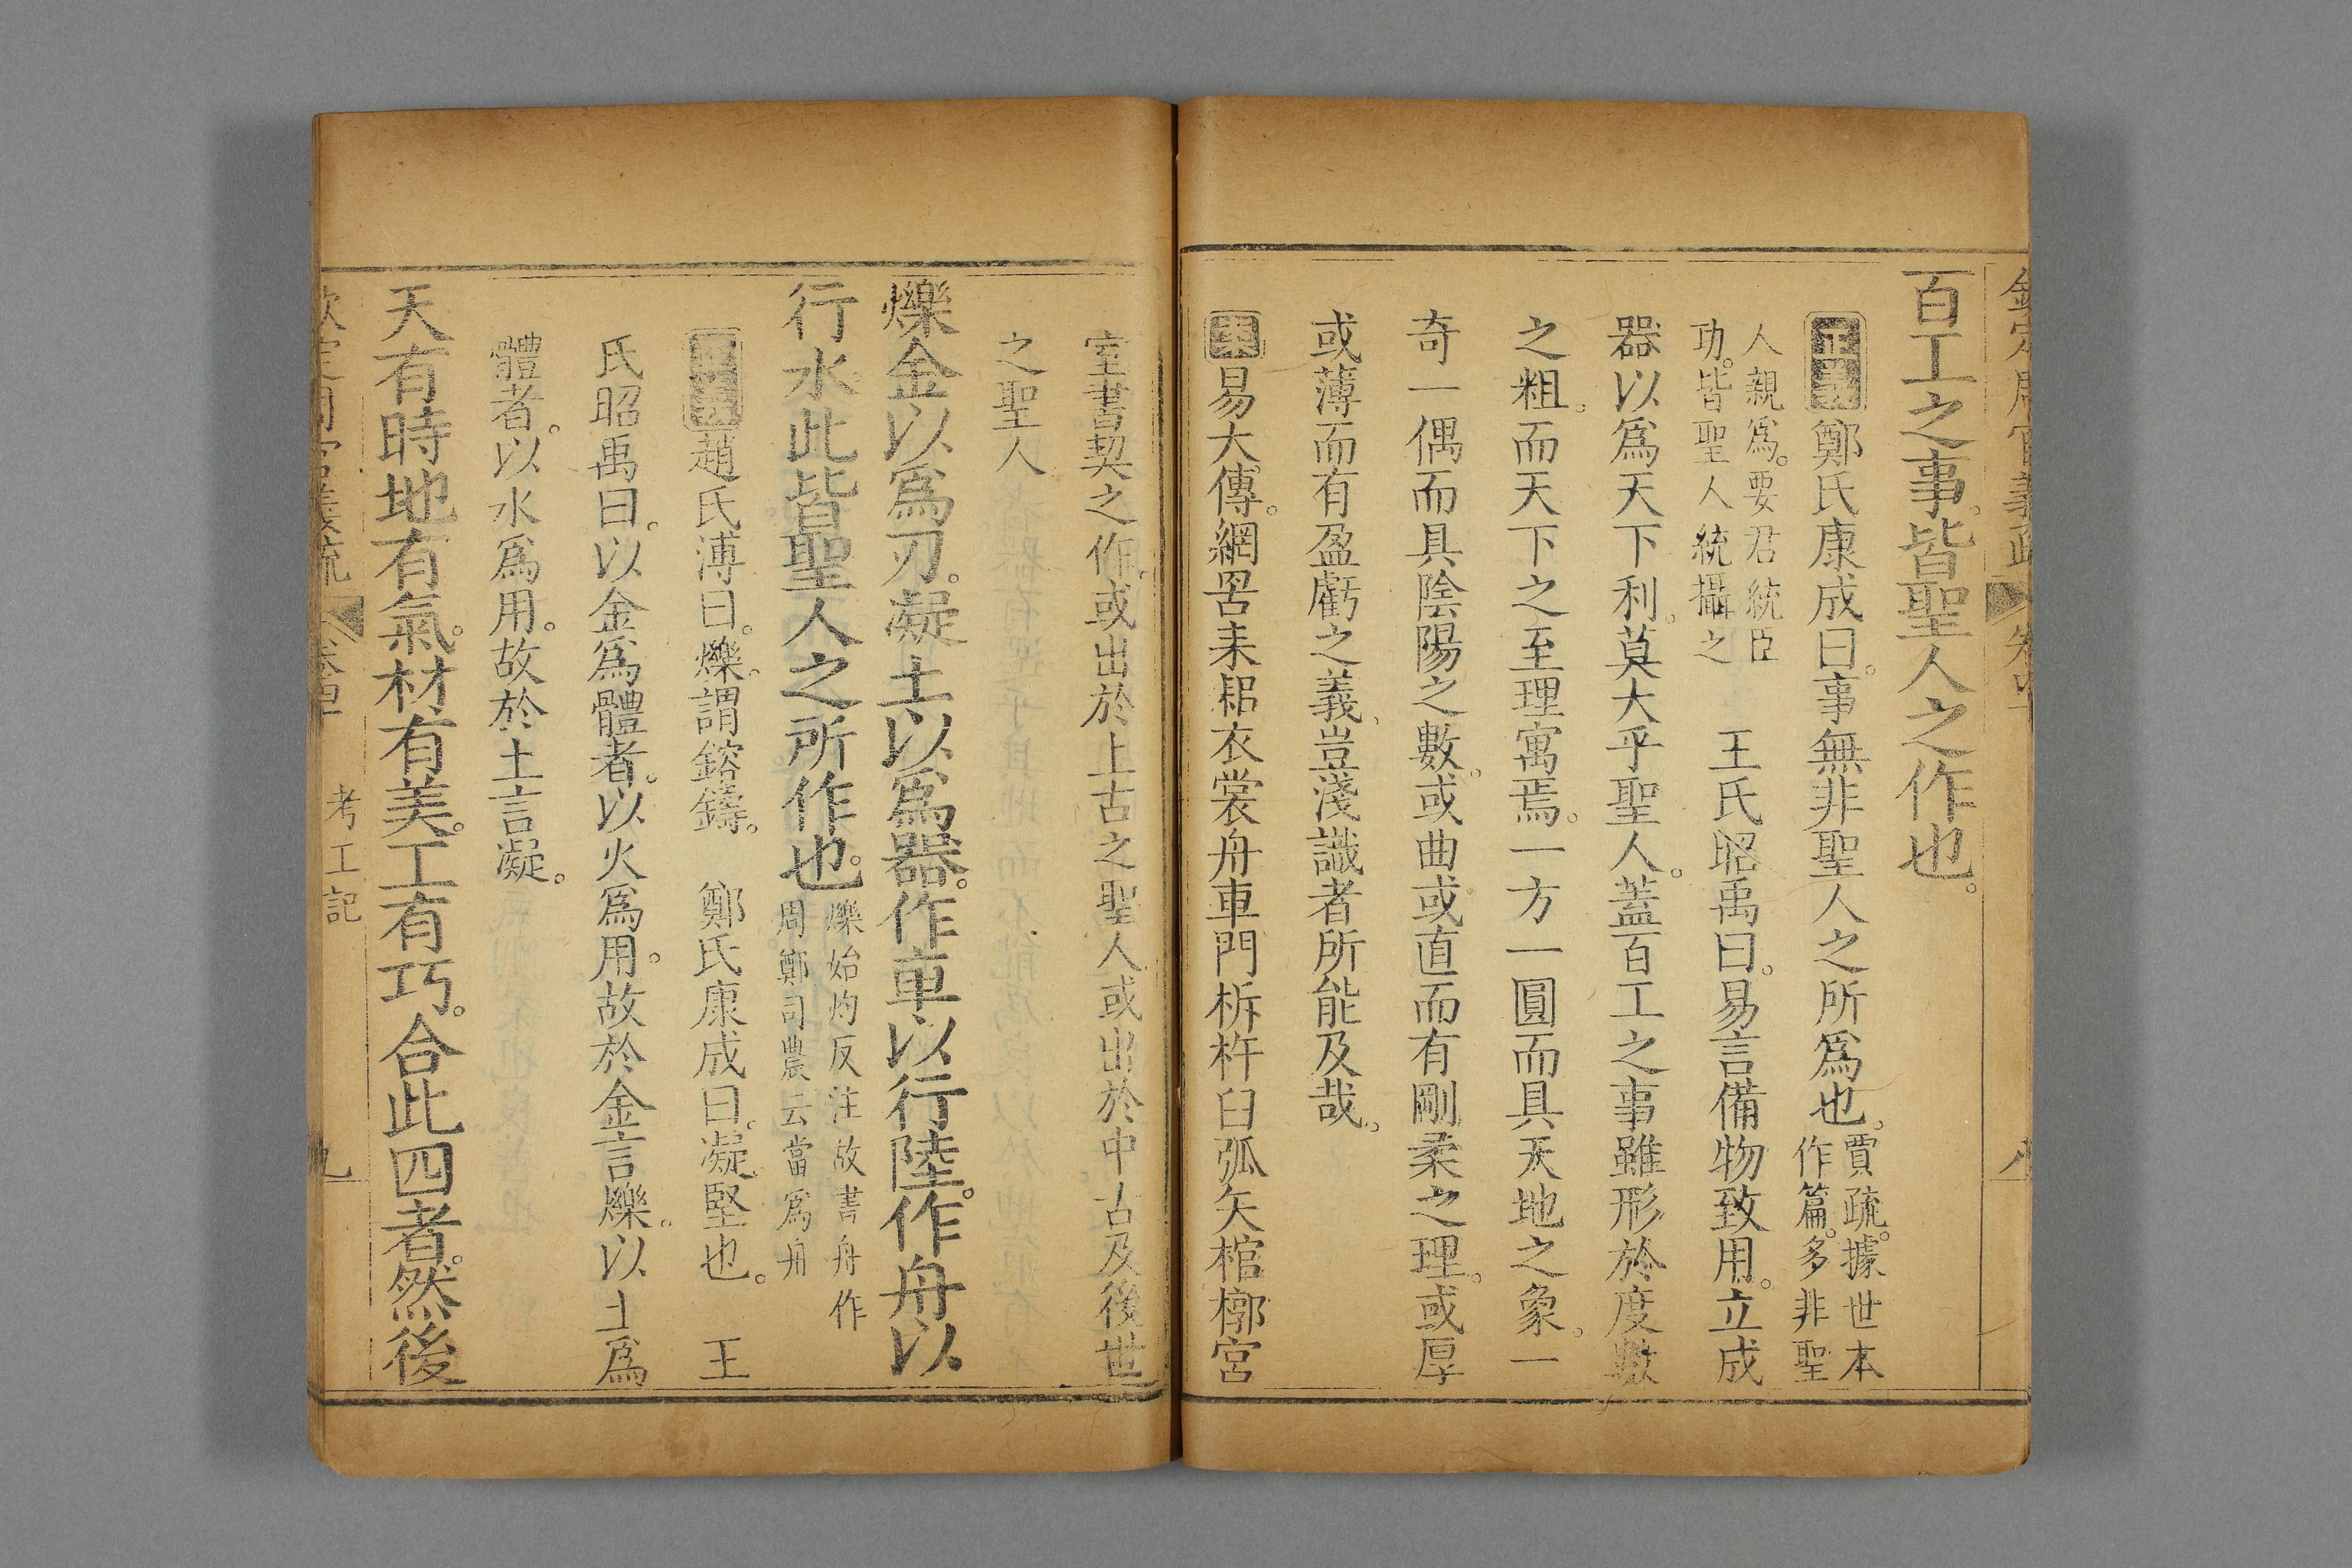 百工之事。皆聖人之作也。
正義鄭氏康成曰。事無非聖人之所爲也。賈疏。據世本
作篇。多非聖
人親爲。要君統臣
功。皆聖人統攝之 王氏昭禹曰。易言備物致用。立成
器以爲天下利。莫大乎聖人。蓋百工之事雖形於度數
之粗。而天下之至理寓焉。一方一圓而具天地之象。一
奇一偶而具陰陽之數。或曲或直而有剛柔之理。或厚
或薄而有盈虧之義、豈淺識者所能及哉。
案易大傳。網罟耒耜衣裳舟車門柝杵臼弧矢棺槨宮
室書契之作。或出於上古之聖人或出於中古及後世
之聖人
爍金以爲刃。凝土以爲器。作車以行陸。作舟以
行水。此皆聖人之所作也。爍始灼反注故書舟作
周鄭司農云當爲舟
正義趙氏溥曰。爍。謂鎔鑄。 鄭氏康成曰。凝。堅也。 王
氏昭禹曰。以金爲體者。以火爲用。故於金言爍。以土爲
體者。以水爲用。故於土言凝。
天有時地有氣。材有美。工有巧。合此四者。然後
考工記
九